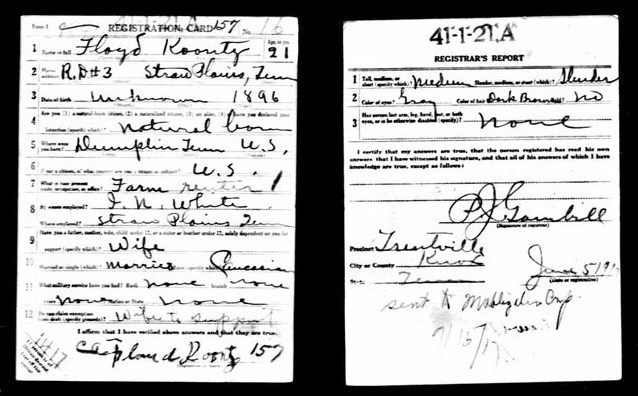 Form 1
REGISTRATION CARD 157 No. 16
1 Name in full Floyd Koontz Age, in yrs. 21
2 Home address R.D #3 Straw Plains, Tenn
3 Date of birth unknown 1896
4 Are you (1) a natural-born citizen, (2) a naturalized citizen, (3) an alien, (4) or have you declared your
intention (specify which)? Natural born
5 Where were you born? Dumplin Tenn U.S.
6 If not a citizen, of what country are you a citizen or subject? U.S.
7 What is your present trade, occupation, or office? Farm renter 1
8 By whom employed? I. N. White
Where employed? Straw Plains, Tenn
9 Have you a father, mother, wife, child under 12, or a sister or brother under 12, solely dependent on you for
support (specify which)? Wife
10 Married or single (which)? Married Race (specify which)? Caucasian
11 What military service have you had? Rank none branch none
years none Nation or State none
12 Do you claim exemption from draft (specify grounds)? Wife to support
I affirm that I have verified above answers and that they are true.
Floyd Koontz 157
41-1-21.A
REGISTRAR'S REPORT
1 Tall, medium, or short (specify which)? Medium Slender, medium, or stout (which)? Slender
2 Color of eyes? Gray Color of hair? Dark Brown Bald? No
3 Has person lost arm, leg, hand, foot, or both eyes, or is he otherwise disabled (specify)? none
I certify that my answers are true, that the person registered has read his own
answers, that I have witnessed his signature, and that all of his answers of which I have
knowledge are true, except as follows:
P J Gambill
(Signature of registrar)
Precinct Trentville
City or County Knox
State Tenn June 5 191
(Date of registration)
sent to Mobilization Camp
9/15/17